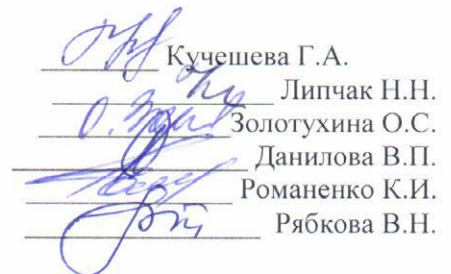 Кучешева Г.А.
Липчак Н.Н.
Золотухина О.С.
Данилова В.П.
Романенко К.И.
Рябкова В.Н.